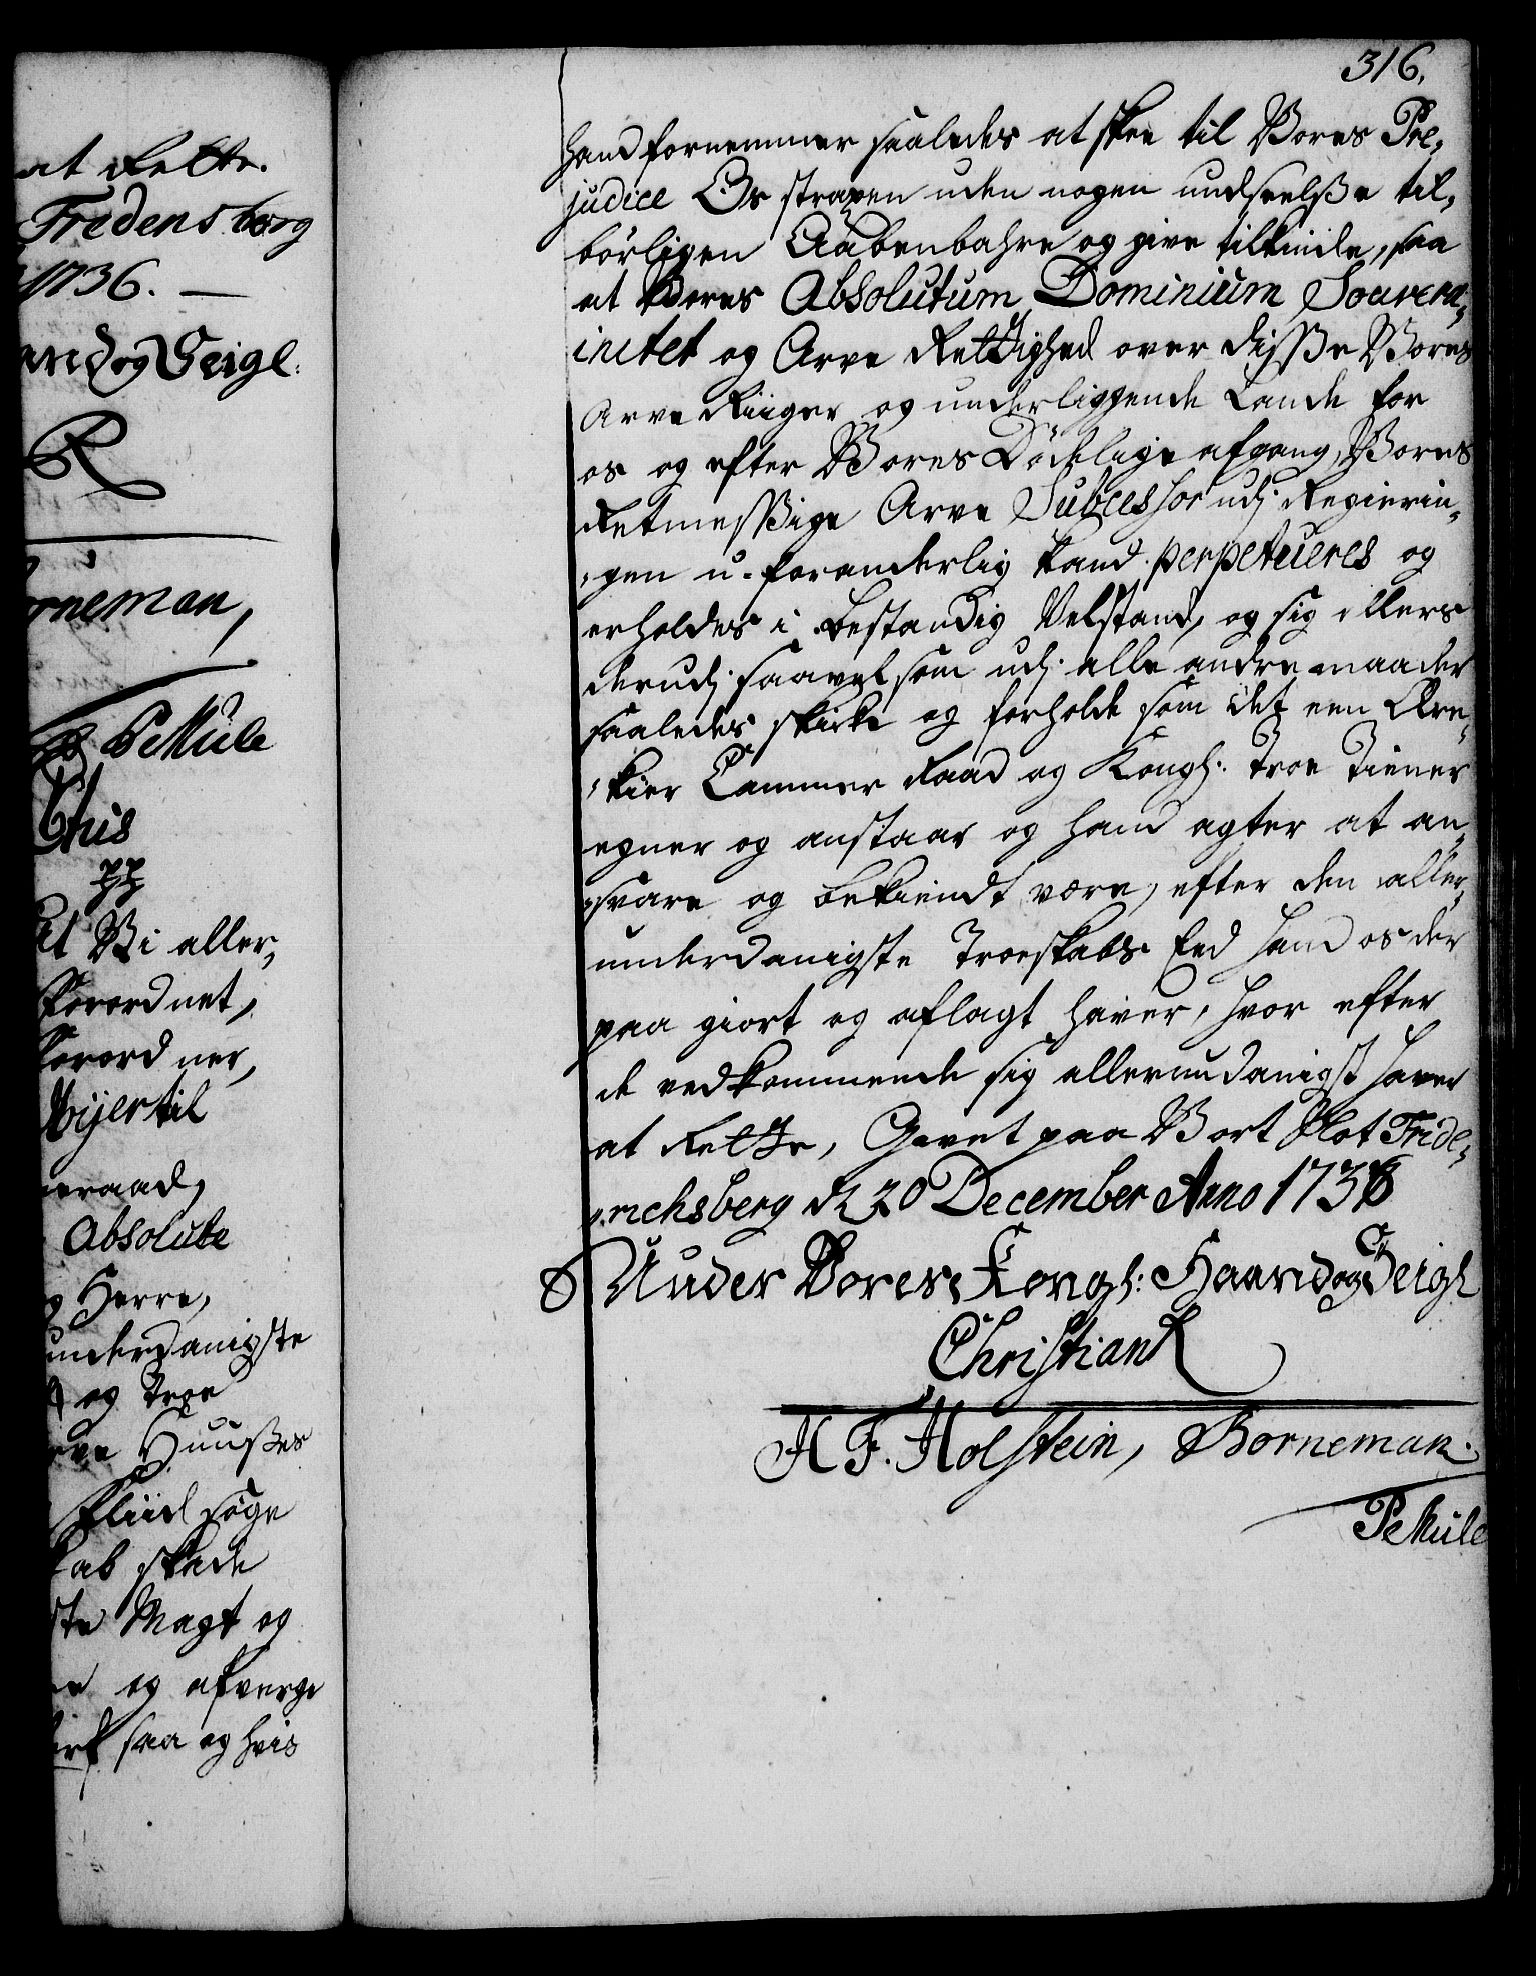 at Rette.
Fredensborg
1736. —
and og Seigl.
R
rneman,
PeMule
Chris
At Vi aller,
forordnet,
forordner,
Mejer til
meraad,
Absolute
Herre,
underdanigste
og Troe
Arve Huusses
Fliid søge
skab skade
ste Magt og
og afverge
saa og hvis
316.
hand fornemmer saaledes at skee til Vores Præ,
judice Os straxen uden nogen undseelsse til,
børligen Aabenbahre og give tilkiende, saa
at Vores Absolutum Dominium Souvera,
initet og Arve Rettighed over disse Vores
Arve Riiger og underliggende Lande for
os og efter Vores Dødelige afgang, Vores
Retmessige Arve Successor udj Regierin,
,gen u-foranderlig kand perpetueres og
erholdes i bestandig Velstand, og sig ellers
derudj saavel som udj alle andre maader
saaledes skicke og forholde som det een Ære,
,kier Cammer Raad og Kongl: Troe Tiener
egner og anstaar og hand agter at an,
,svare og bekiendt være, efter den aller,
underdanigste Troeskabs Eed hand os der
paa giort og aflagt haver, hvor efter
de vedkommende sig allerundanigst haver
at Rette, Givet paa Vort Slot Fride,
,richsberg d 20 December Anno 1736
Under Vores Kongl: Haand og Seigl
Christian R
H F. Holstein, Borneman.
PeMule